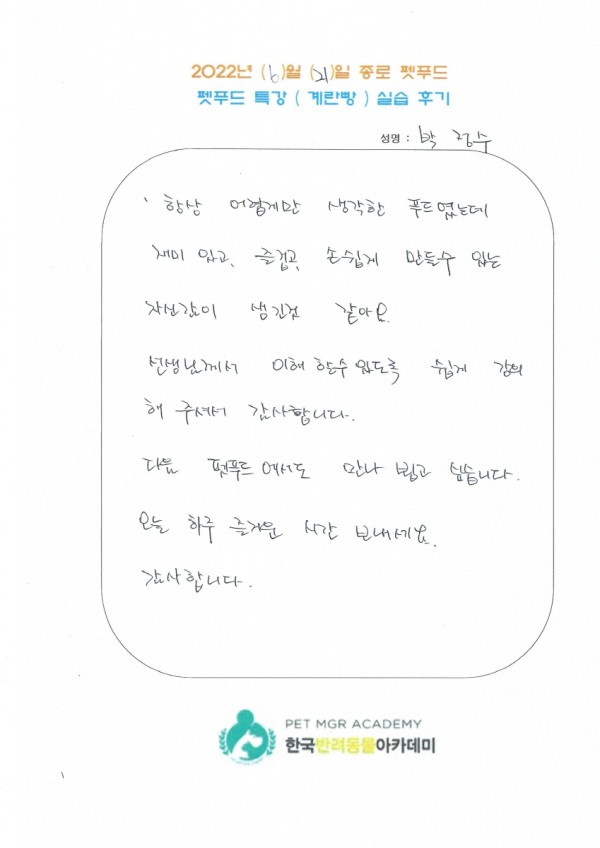 2022년 (6)월 (21)일 종로 펫푸드
펫푸드 특강 ( 계란빵 ) 실습 후기
성명 : 박 정수
항상 어렵게만 생각한 푸드였는데
재미 있고, 즐겁고, 손쉽게 만들수 있는
자신감이 생긴것 같아요.
선생님께서 이해 할수 있도록 쉽게 강의
해 주셔서 감사합니다.
다음 펫푸드 에서도 만나 뵙고 싶습니다.
오늘 하루 즐거운 시간 보내세요.
감사합니다.
PET MGR ACADEMY
한국반려동물아카데미